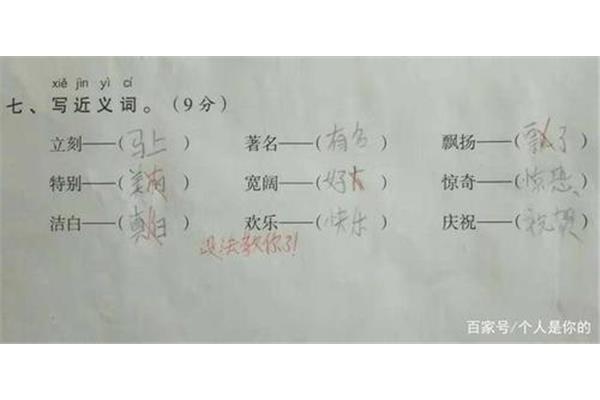 xiě jìn yì cí
七、写近义词。(9分)
立刻——(马上) 著名——(有名) 飘扬——(飘了)
特别——(美肉) 宽阔——(好大) 惊奇——(惊恐)
洁白——(真白) 欢乐——(快乐) 庆祝——(祝贺)
没法教你了!
百家号/个人是你的